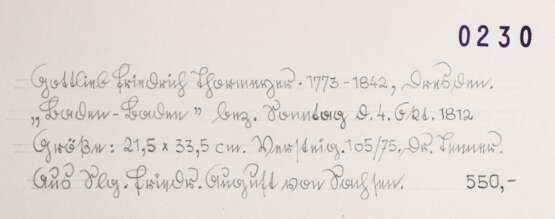 0230
Gottlieb Friedrich Thormeyer. 1773-1842, Dresden.
„Baden-Baden" bez. Sonntag d. 4. Okt. 1812
Größe: 21,5 x 33,5 cm. Versteig. 105/75, Dr. Tenner.
Aus Slg. Friedr. August von Sachsen. 550,-